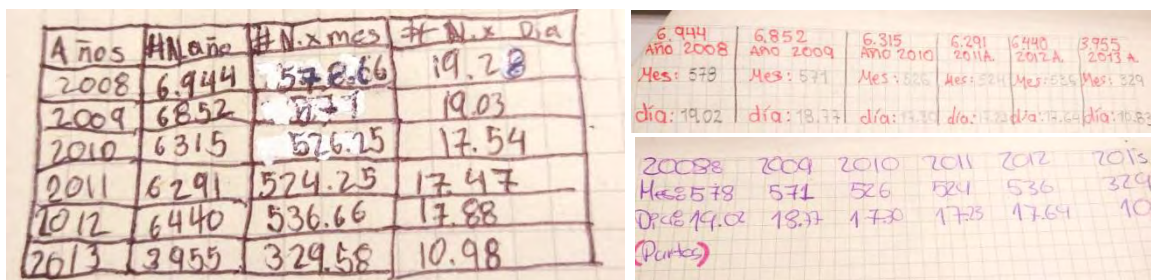 Años #N.año #N.x mes # N.x Dia
2008 6.944 578.66 19.28
2009 6852 571 19.03
2010 6315 526.25 17.54
2011 6291 524.25 17.47
2012 6440 536.66 17.88
2013 3955 329.58 10.98
6.944 6.852 6.315 6.291 6.440 3.955
Año 2008 Año 2009 Año 2010 2011A 2012A 2013 A
Mes: 578 Mes: 571 Mes: 526 Mes: 524 Mes: 536 Mes: 329
día: 19.02 día: 18.77 día: 17.30 día: día: 17.64 día: 10.83
2008 2009 2010 2011 2012 2013
Mes 578 571 526 524 536 329
19.02 18.77 17.30 17.23 17.64 10
(Partos)